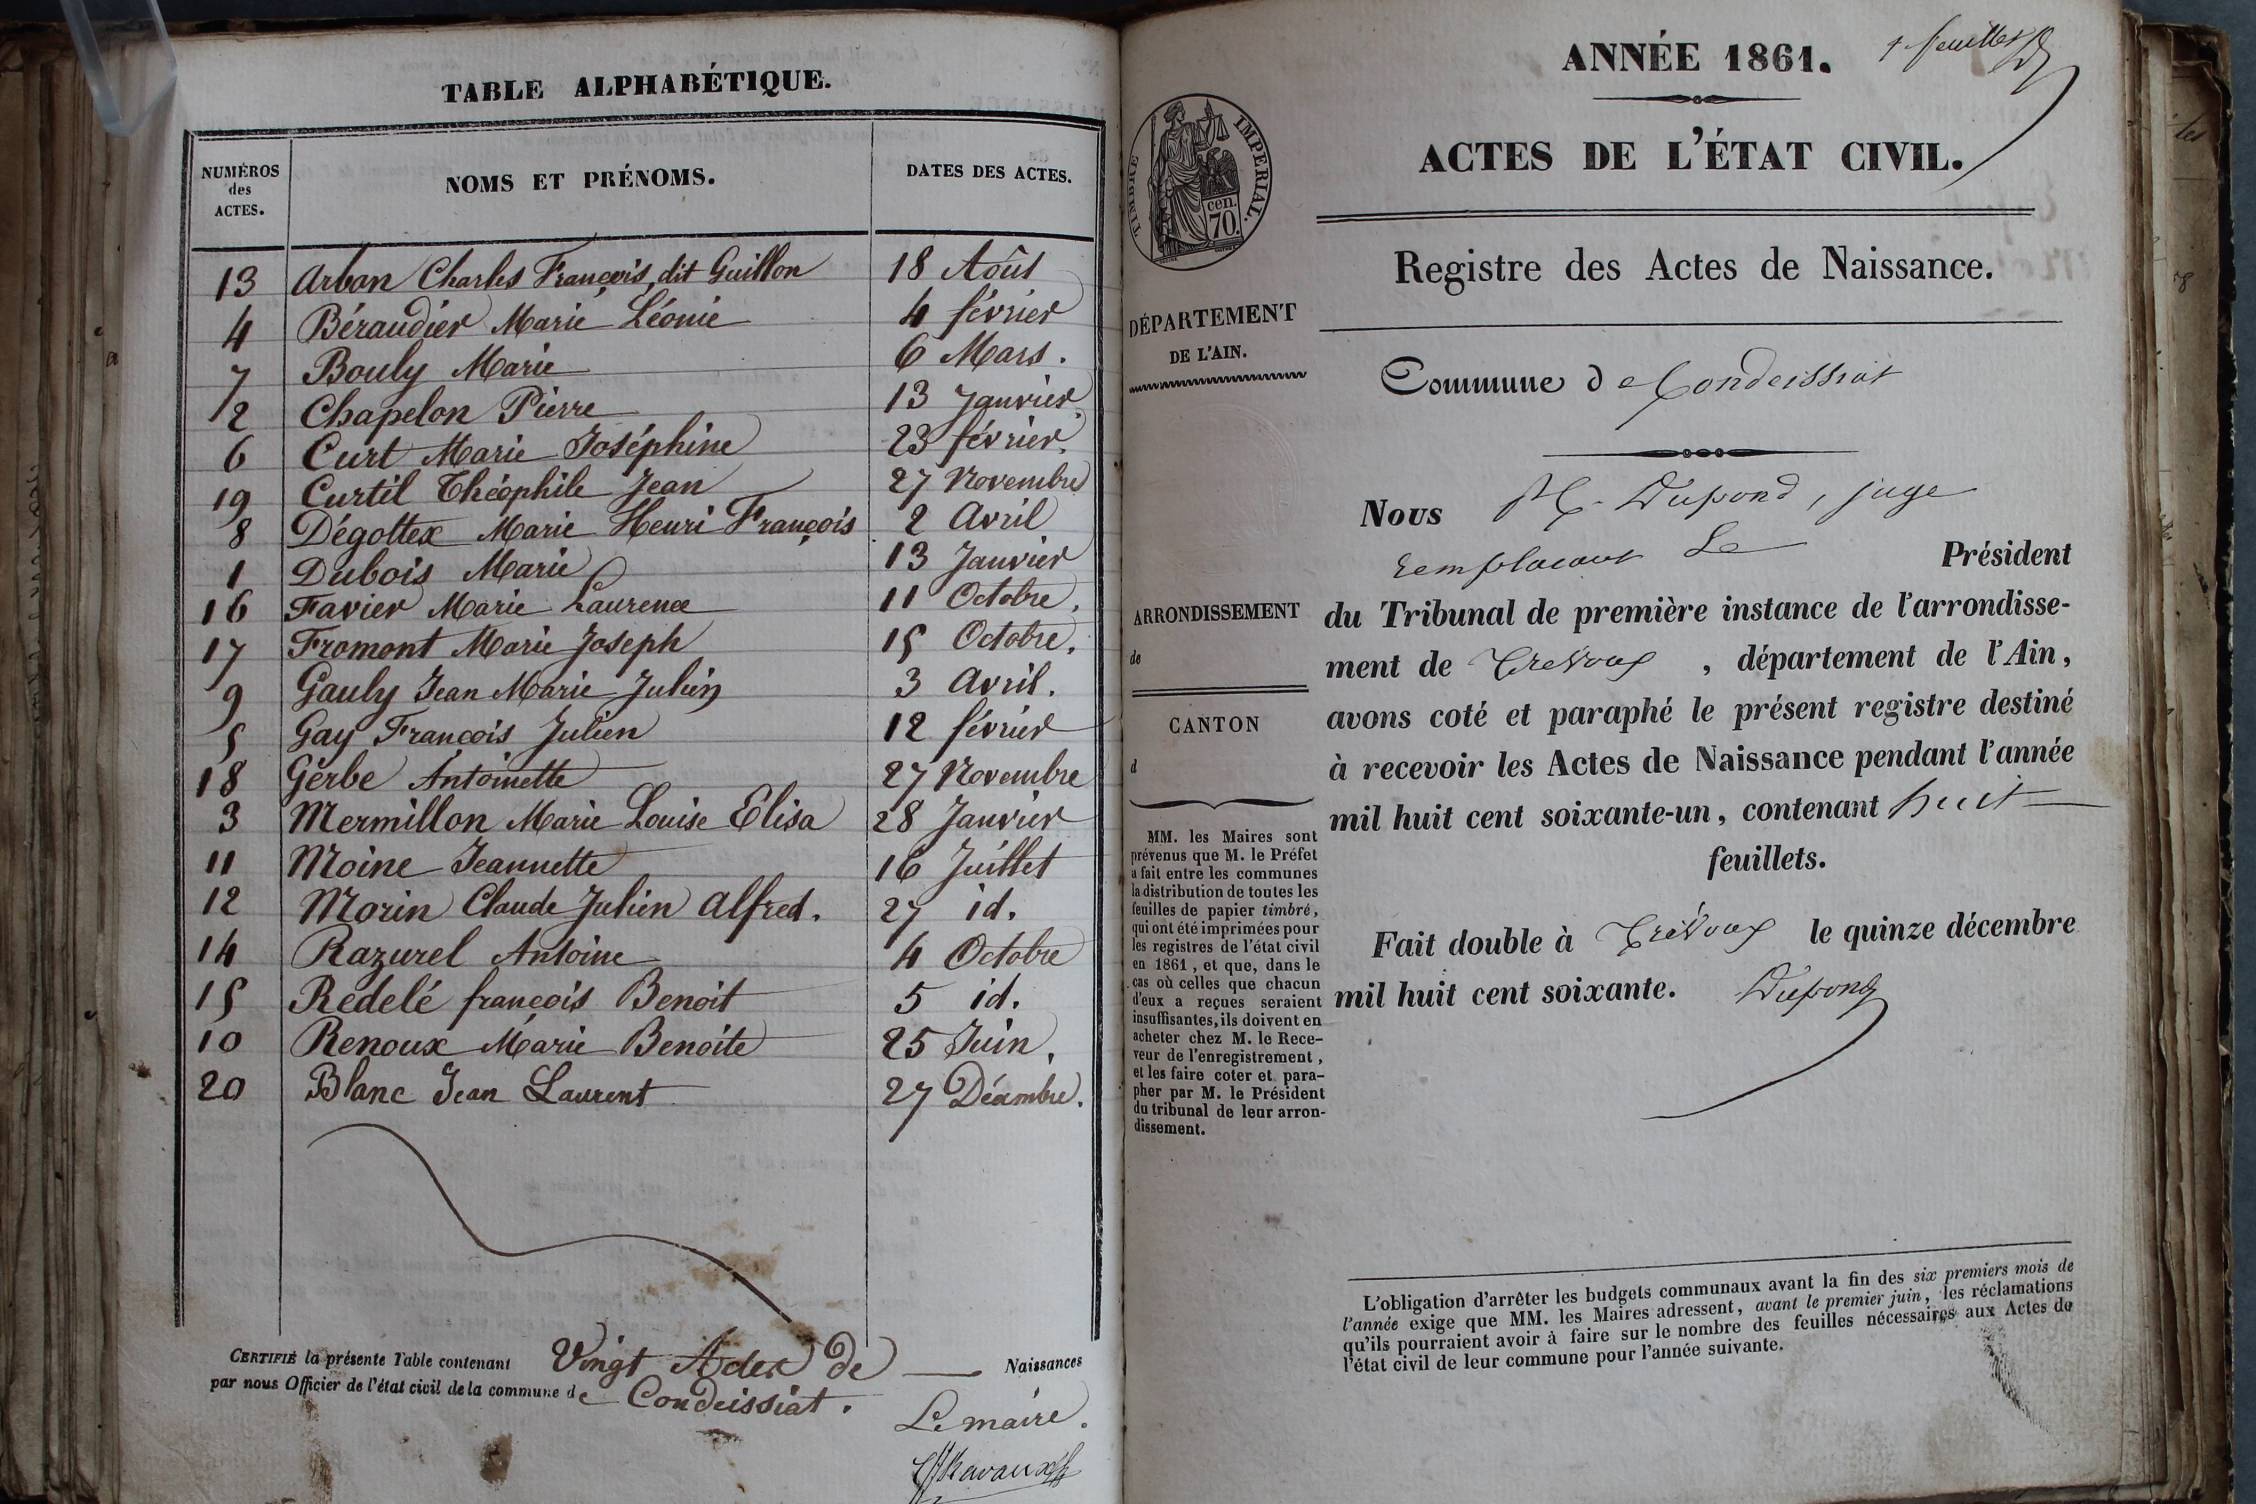 TABLE ALPHABÉTIQUE.
NUMÉROS des ACTES. NOMS ET PRÉNOMS. DATES DES ACTES.
13 Arban Charles François, dit Guillon 18 Août
4 Béraudier Marie Léonie 4 février
7 Bouly Marie 6 Mars.
2 Chapelon Pierre 13 Janvier.
6 Curt Marie Joséphine 23 février.
19 Curtil Théophile Jean 27 Novembre
8 Dégottex Marie Henri François 2 Avril
1 Dubois Marie 13 Janvier
16 Favier Marie Laurence 11 Octobre.
17 Fromont Marie Joseph 15 Octobre.
9 Gauly Jean Marie Julien 3 Avril.
5 Gay François Julien 12 février
18 Gerbe Antoinette 27 Novembre
3 Mermillon Marie Louise Elisa 28 Janvier
11 Moine Jeannette 16 Juillet
12 Morin Claude Julien Alfred. 27 id.
14 Razurel Antoine 4 Octobre
15 Redelé françois Benoit 5 id.
10 Renoux Marie Benoite 25 Juin.
20 Blanc Jean Laurent 27 Décembre.
CERTIFIÉ la présente Table contenant Vingt Actes de Naissances
par nous Officier de l'état civil de la commune de Condeissiat.
Le maire.
ANNÉE 1861.
feuillet
ACTES DE L'ÉTAT CIVIL.
TIMBRE IMPERIAL.
cen.
70.
Registre des Actes de Naissance.
DÉPARTEMENT
DE L'AIN.
Commune de Condeissiat
Nous M. Dupond, juge
remplaçant Le Président
ARRONDISSEMENT
de
du Tribunal de première instance de l'arrondisse-
ment de Trévoux, département de l'Ain,
avons coté et paraphé le présent registre destiné
à recevoir les Actes de Naissance pendant l'année
mil huit cent soixante-un, contenant huit
feuillets.
CANTON
d
MM. les Maires sont
prévenus que M. le Préfet
a fait entre les communes
la distribution de toutes les
feuilles de papier timbré,
qui ont été imprimées pour
les registres de l'état civil
en 1861, et que, dans le
cas où celles que chacun
d'eux a reçues seraient
insuffisantes, ils doivent en
acheter chez M. le Rece-
veur de l'enregistrement,
et les faire coter et para-
pher par M. le Président
du tribunal de leur arron-
dissement.
Fait double à Trévoux le quinze décembre
mil huit cent soixante. Dupond
L'obligation d'arrêter les budgets communaux avant la fin des six premiers mois de
l'année exige que MM. les Maires adressent, avant le premier juin, les réclamations
qu'ils pourraient avoir à faire sur le nombre des feuilles nécessaires aux Actes de
l'état civil de leur commune pour l'année suivante.